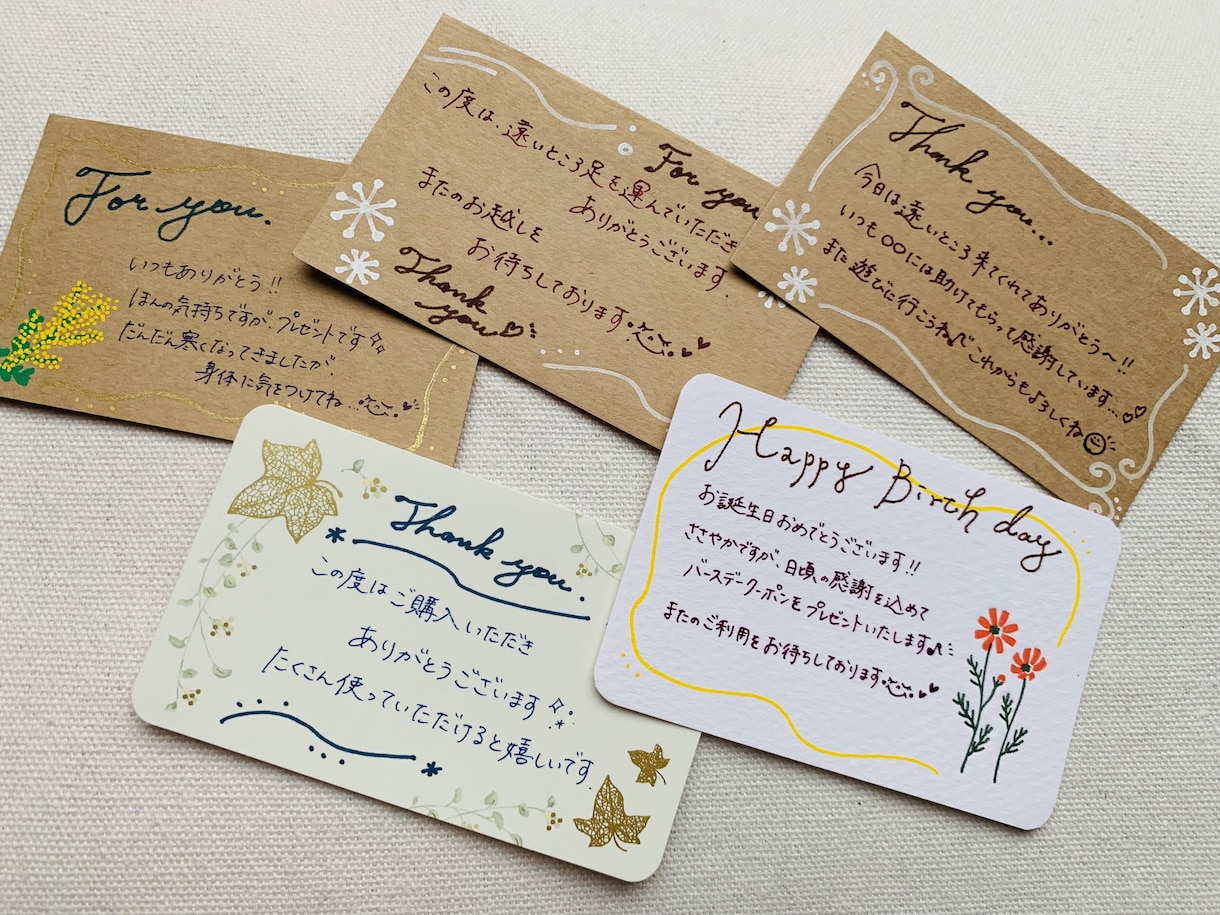 For you.
いつもありがとう!!
ほんの気持ちですが、プレゼントです
だんだん寒くなってきましたが、
身体に気をつけてね…
この度は、遠いところ足を運んでいただき
ありがとうございます.
For you
またのお越しを
お待ちしております
Thank
you
Thank you...
今日は遠いところ来てくれてありがとう〜!!
いつも〇〇には助けてもらって感謝しています...
また遊びに行こうね♪これからもよろしくね
Thank you.
この度はご購入いただき
ありがとうございます
たくさん使っていただけると嬉しいです.
Happy Birth day
お誕生日おめでとうございます!!
ささやかですが、日頃の感謝を込めて
バースデークーポンをプレゼントいたします♪
またのご利用をお待ちしております